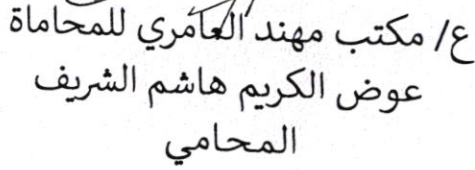 ع/ مكتب مهند العامري للمحاماة
عوض الكريم هاشم الشريف
المحامي